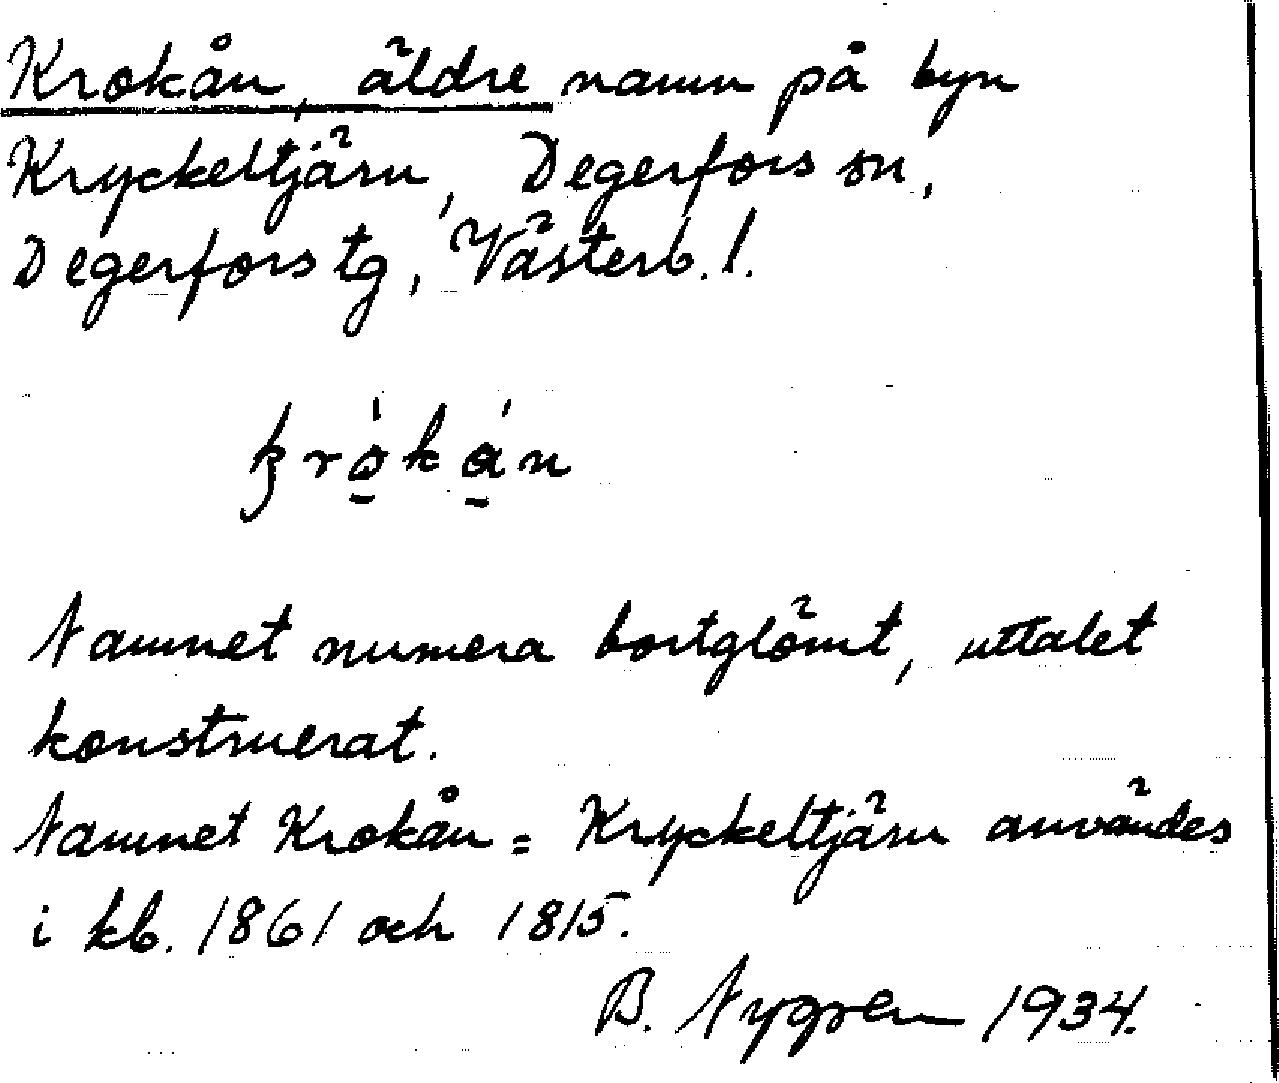 Krokån, äldre namn på byn
Kryckeltjärn, Degerfors sn,
Degerfors tg, Västerb. l.
kròkán
Namnet numera bortglömt, uttalet
konstruerat.
Namnet Krokån = Kryckeltjärn användes
i kb. 1861 och 1815.
B. Nygren 1934.